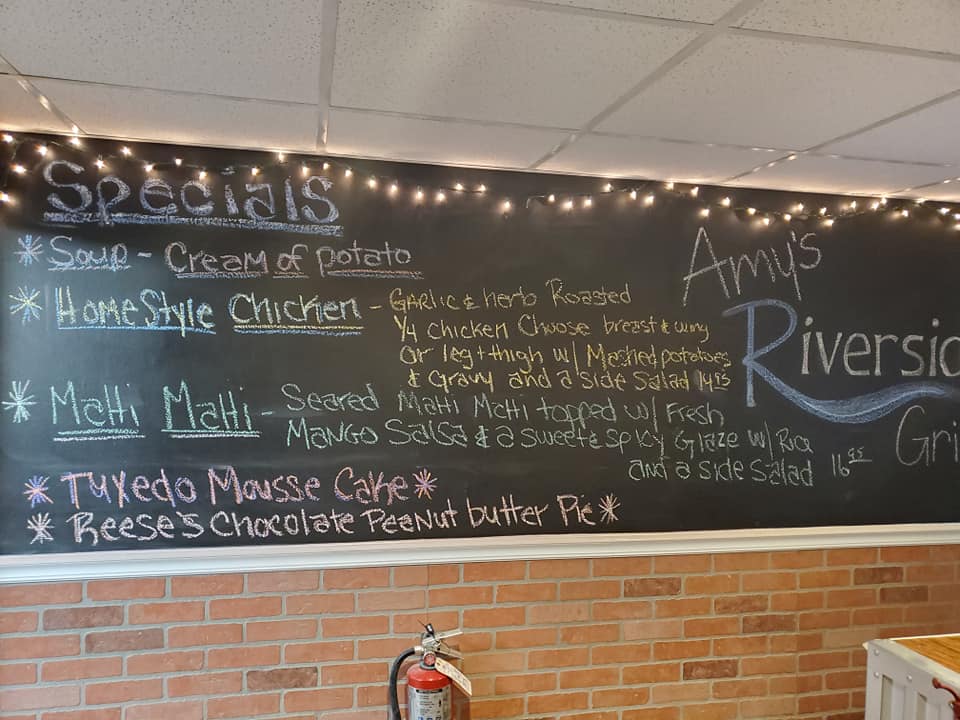 Specials
* Soup - Cream of potato
* HomeStyle Chicken - Garlic & herb Roasted
1/4 chicken Choose breast & wing
or leg + thigh w/ Mashed potatoes
& Gravy and a side Salad 14.95
* Mahi Mahi - Seared Mahi Mahi topped w/ Fresh
Mango Salsa & a sweet & spicy Glaze w/ Rice
and a side Salad 16.95
* Tuxedo Mousse Cake *
* Reese's Chocolate Peanut butter Pie *
Amy's
Riversid
Gri